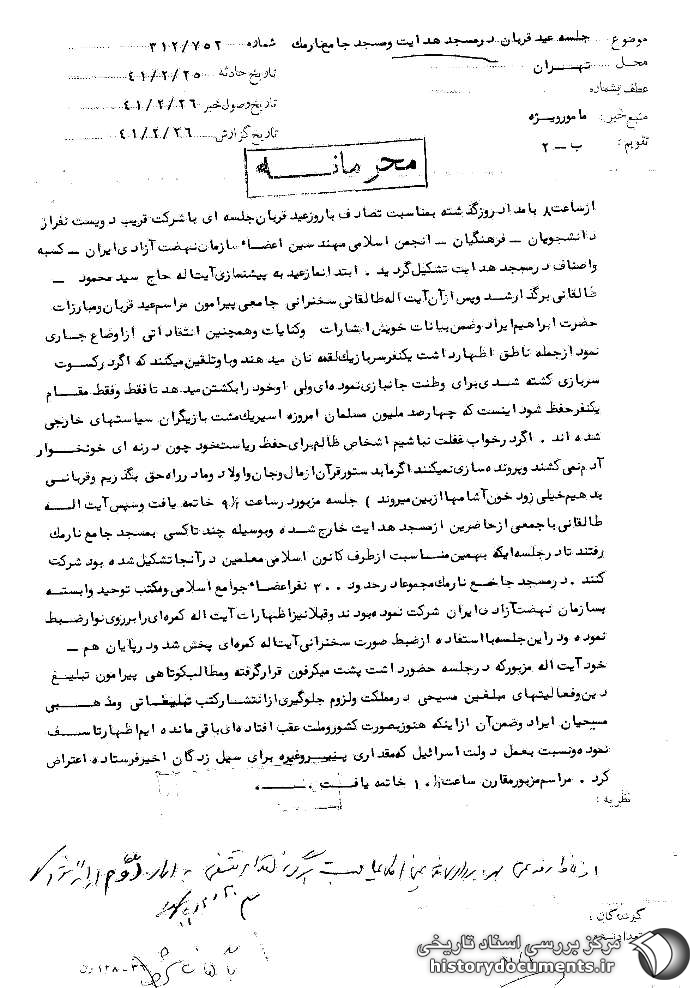 موضوع جلسه عید قربان درمسجد هدایت ومسجد جامع نارمك شماره ۳۱۲/۷۵۲
محل تهران تاریخ حادثه ۴۱/۲/۲۵
عطف بشماره
تاریخ وصول خبر ۴۱/۲/۲۶
منبع خبر: مامورویژه
تاریخ گزارش ۴۱/۲/۲۶
تقویم: ب - ۲
محرمانه
ازساعت ۸ بامداد روزگذشته بمناسبت تصادف باروزعید قربان جلسه ای باشرکت قریب دویست نفراز
دانشجویان - فرهنگیان - انجمن اسلامی مهندسین اعضاء سازمان نهضت آزادی ایران - کسبه
واصناف درمسجد هدایت تشکیل گردید . ابتدا نمازعید به پیشنمازی آیت اله حاج سید محمود -
طالقانی برگذارشد وپس ازآن آیت اله طالقانی سخنرانی جامعی پیرامون مراسم عید قربان ومبارزات
حضرت ابراهیم ایراد وضمن بیانات خویش اشارات وکنایات وهمچنین انتقاداتی ازاوضاع جاری
نمود ازجمله ناطق اظهارداشت یکنفرسربازیك لقمه نان میدهند وباوتلقین میکنند که اگردرکسوت
سربازی کشته شدی برای وطنت جانبازی نموده ای ولی اوخود رابکشتن میدهد تا فقط وفقط مقام
یکنفرحفظ شود اینست که چهارصد ملیون مسلمان امروزه اسیریك مشت بازیگران سیاستهای خارجی
شده اند . اگردرخواب غفلت نباشیم اشخاص ظالم برای حفظ ریاست خود چون درنه ای خونخوار
آدم نمی کشند وپرونده سازی نمیکنند اگرمابدستورقرآن ازمال وجان واولاد ومادرراه حق بگذریم وقربانی
بدهیم خیلی زود خون آشامها ازبین میروند ) جلسه مزبوردرساعت ۹/۵ خاتمه یافت وسپس آیت اله
طالقانی باجمعی ازحاضرین ازمسجد هدایت خارج شده وبوسیله چند تاکسی بمسجد جامع نارمك
رفتند تادرجلسه ایکه بهمین مناسبت ازطرف کانون اسلامی معلمین درآنجا تشکیل شده بود شرکت
کنند . درمسجد جامع نارمك مجموعا درحدود ۳۰۰ نفراعضاء جوامع اسلامی ومکتب توحید وابسته
بسازمان نهضت آزادی ایران شرکت نموده بودند وقبلانیزاظهارات آیت اله کمره ای رابرروی نوارضبط
نموده ودراین جلسه بااستفاده ازضبط صورت سخنرانی آیت اله کمره ای پخش شد ودرپایان هم -
خود آیت اله مزبورکه درجلسه حضورداشت پشت میکرفون قرارگرفته ومطالب کوتاهی پیرامون تبلیغ
دین وفعالیتهای مبلغین مسیحی درمملکت ولزوم جلوگیری ازانتشارکتب تبلیغاتی ومذهبی
مسیحیان ایراد وضمن آن ازاینکه هنوزبصورت کشوروملت عقب افتاده ای باقی مانده ایم اظهارتاسف
نموده ونسبت بعمل دولت اسرائیل که مقداری پنیروغیره برای سیل زدگان اخیرفرستاده اعتراض
کرد . مراسم مزبورمقارن ساعت ۱۰/۵ خاتمه یافت .
نظریه :
گیرندگان :
تعدادنسخه
مرکز بررسی اسناد تاریخی
historydocuments.ir